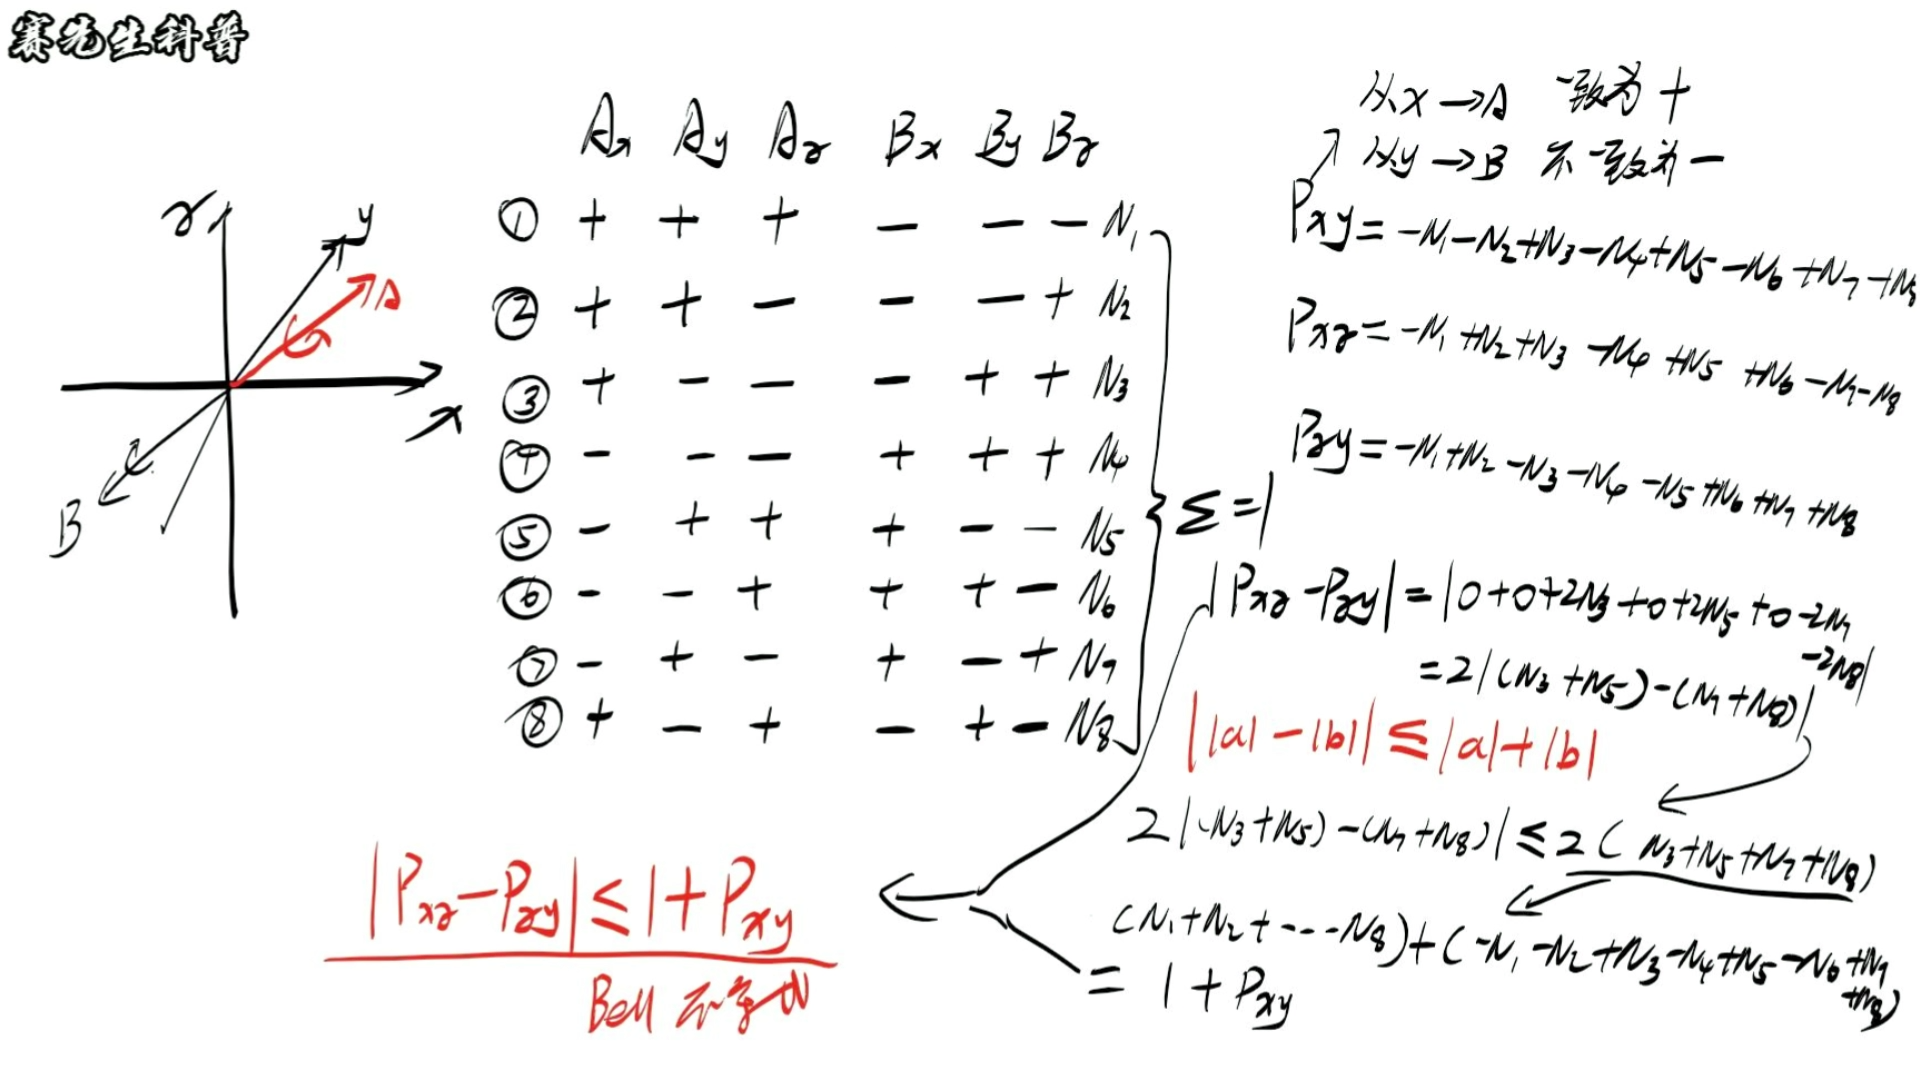 赛先生科普
从x→A 一致为+
从y→B 不一致为−
Ax Ay Az Bx By Bz
① + + + − − − N₁
② + + − − − + N₂
③ + − − − + + N₃
④ − − − + + + N₄
⑤ − + + + − − N₅
⑥ − − + + + − N₆
⑦ − + − + − + N₇
⑧ + − + − + − N₈
Σ=1
z
y
A
x
B
Pxy=−N₁−N₂+N₃−N₄+N₅−N₆+N₇+N₈
Pxz=−N₁+N₂+N₃−N₄+N₅+N₆−N₇−N₈
Pzy=−N₁+N₂−N₃−N₄−N₅+N₆+N₇+N₈
|Pxz−Pzy|=|0+0+2N₃+0+2N₅+0−2N₇−2N₈|
=2|(N₃+N₅)−(N₇+N₈)|
||a|−|b||≤|a|+|b|
2|(N₃+N₅)−(N₇+N₈)|≤2(N₃+N₅+N₇+N₈)
(N₁+N₂+---N₈)+(−N₁−N₂+N₃−N₄+N₅−N₆+N₇+N₈)
=1+Pxy
|Pxz−Pzy|≤1+Pxy
Bell 不等式